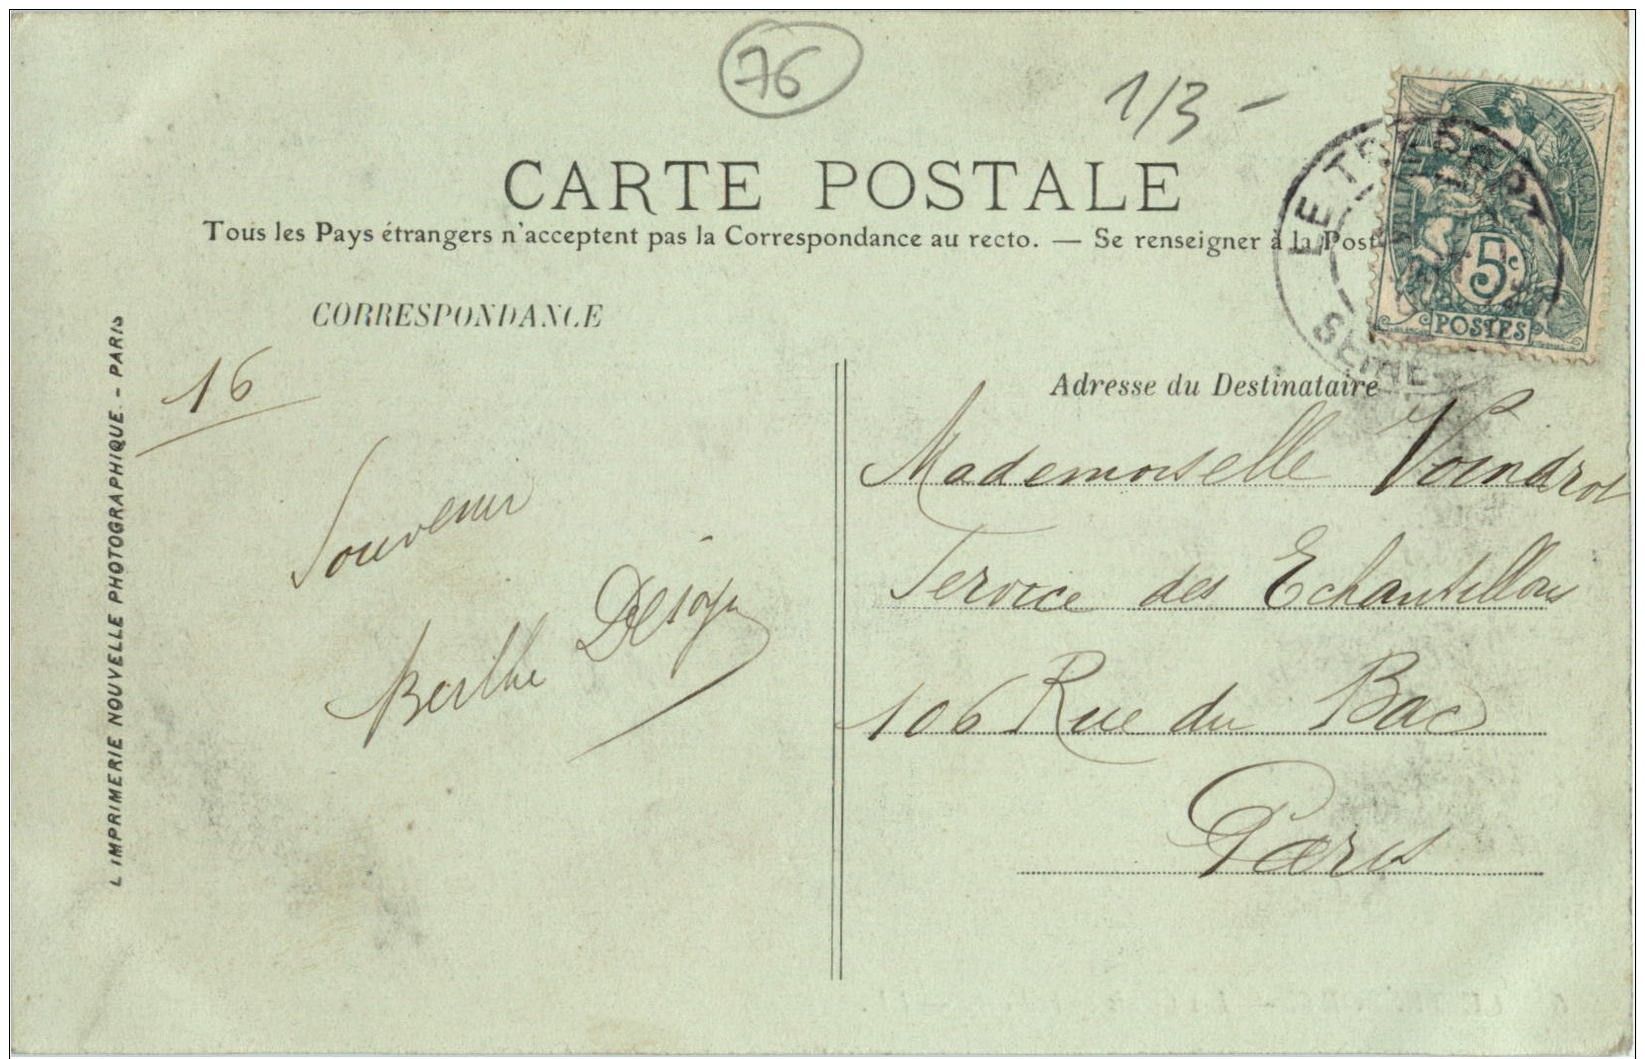 76
1/3 -
CARTE POSTALE
Tous les Pays étrangers n'acceptent pas la Correspondance au recto. — Se renseigner à la Post
CORRESPONDANCE
Adresse du Destinataire
L IMPRIMERIE NOUVELLE PHOTOGRAPHIQUE. - PARIS
16
Souvenir
Berthe
Mademoiselle Voindrot
Service des Echantillons
106 Rue du Bac
Paris
5c
POSTES
LE TREPORT
SEINE